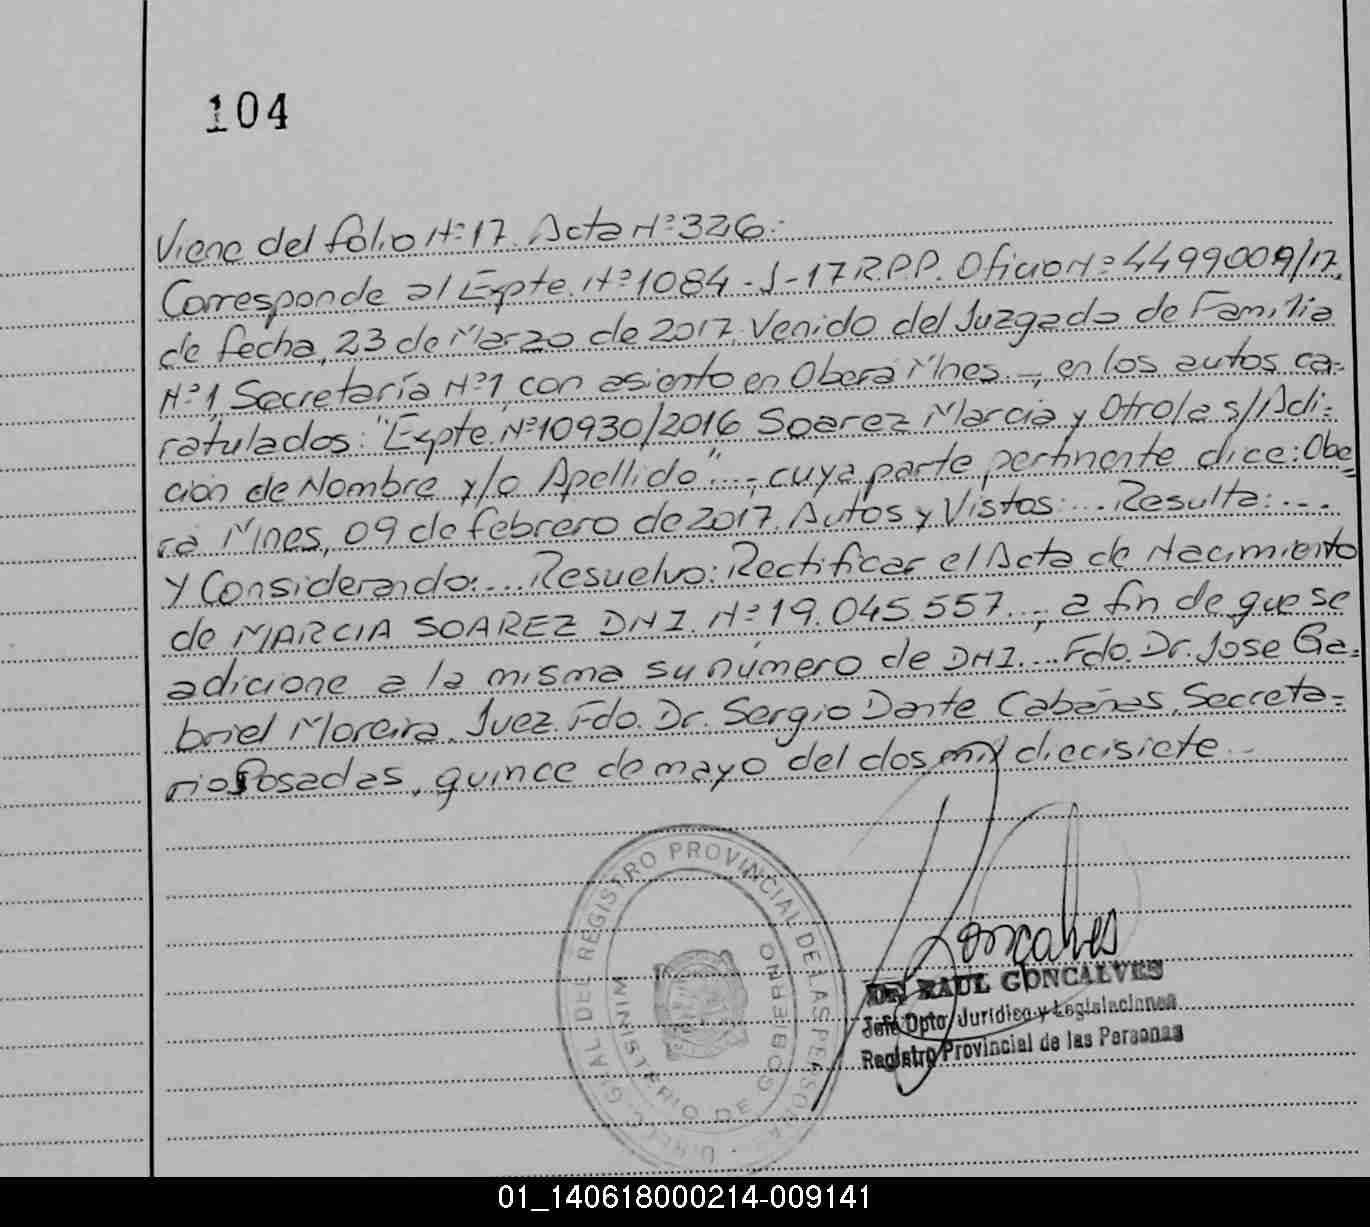 104
Viene del folio Nº 17. Acta Nº 326:
Corresponde al Expte. Nº 1084-J-17 R.P.P. Oficio Nº 4499009/17,
de fecha, 23 de Marzo de 2017, Venido del Juzgado de Familia
Nº 1, Secretaría Nº 1, con asiento en Obera Mnes..., en los autos ca=
ratulados: "Expte. Nº 10930/2016 Soarez Marcia y Otro/a s/Adi=
cion de Nombre y/o Apellido"..., cuya parte pertinente dice: Obe=
ra Mnes, 09 de febrero de 2017. Autos y Vistos:... Resulta:...
y Considerando:... Resuelvo: Rectificar el Acta de Nacimiento
de MARCIA SOAREZ DNI. Nº 19.045.557..., a fin de que se
adicione a la misma su número de DNI... Fdo. Dr. Jose Ga=
briel Moreira. Juez. Fdo. Dr. Sergio Dante Cabañas. Secreta=
rio Posadas, quince de mayo del dos mil diecisiete.-
DIREC. GRAL DEL REGISTRO PROVINCIAL DE LAS PERSONAS
MINISTERIO DE GOBIERNO
Goncalves
Dr. RAUL GONCALVES
Jefe Dpto. Jurídico y Legislaciones
Registro Provincial de las Personas
01_140618000214-009141